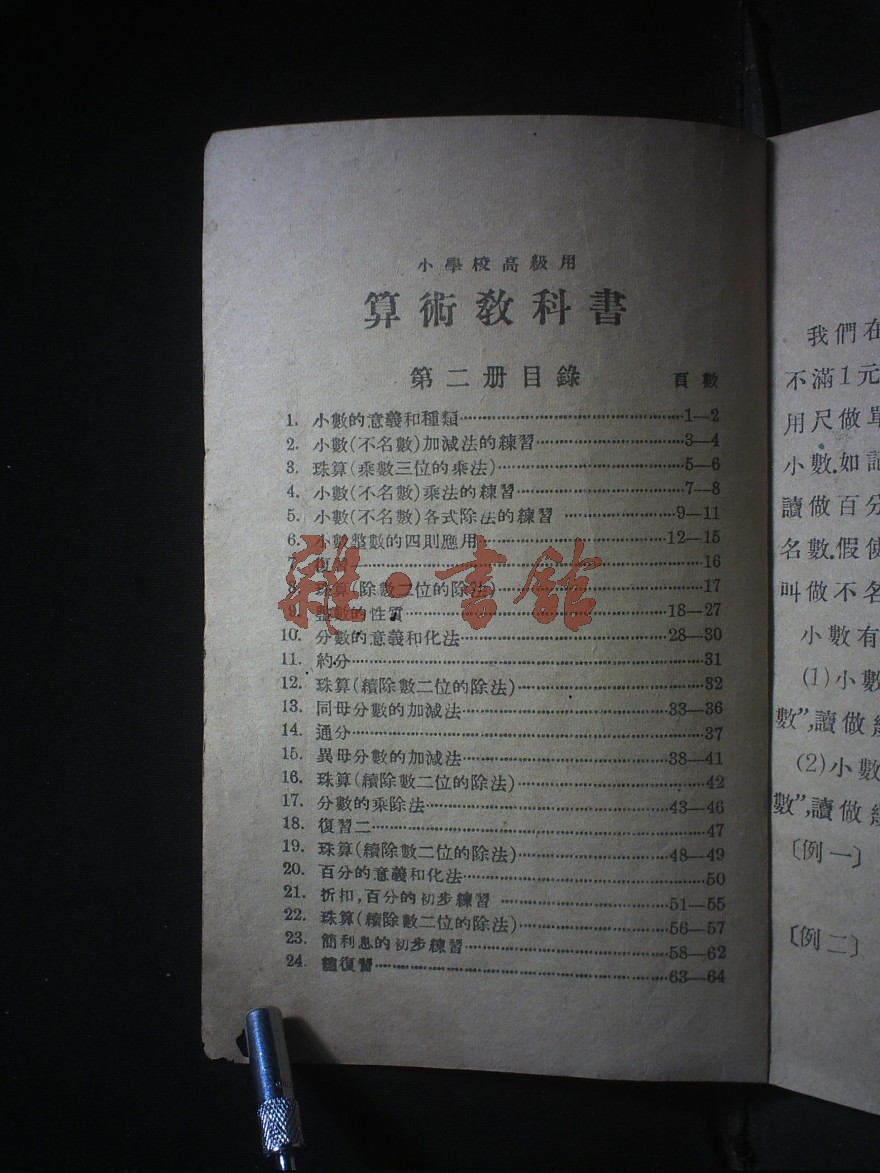 小學校高級用
算術教科書
第二册目錄 頁數
1. 小數的意義和種類…1—2
2. 小數(不名數)加減法的練習…3—4
3. 珠算(乘數三位的乘法)…5—6
4. 小數(不名數)乘法的練習…7—8
5. 小數(不名數)各式除法的練習…9—11
6. 小數整數的四則應用…12—15
7. 復習一…16
8. 珠算(除數二位的除法)…17
9. 整數的性質…18—27
10. 分數的意義和化法…28—30
11. 約分…31
12. 珠算(續除數二位的除法)…32
13. 同母分數的加減法…33—36
14. 通分…37
15. 異母分數的加減法…38—41
16. 珠算(續除數二位的除法)…42
17. 分數的乘除法…43—46
18. 復習二…47
19. 珠算(續除數二位的除法)…48—49
20. 百分的意義和化法…50
21. 折扣,百分的初步練習…51—55
22. 珠算(續除數二位的除法)…56—57
23. 簡利息的初步練習…58—62
24. 總復習…63—64
雜·書館
我們在
不滿1元
用尺做單
小數.如記
讀做百分
名數.假使
叫做不名
小數有
(1)小數
數”,讀做幾
(2)小數
數”,讀做幾
〔例一〕
〔例二〕